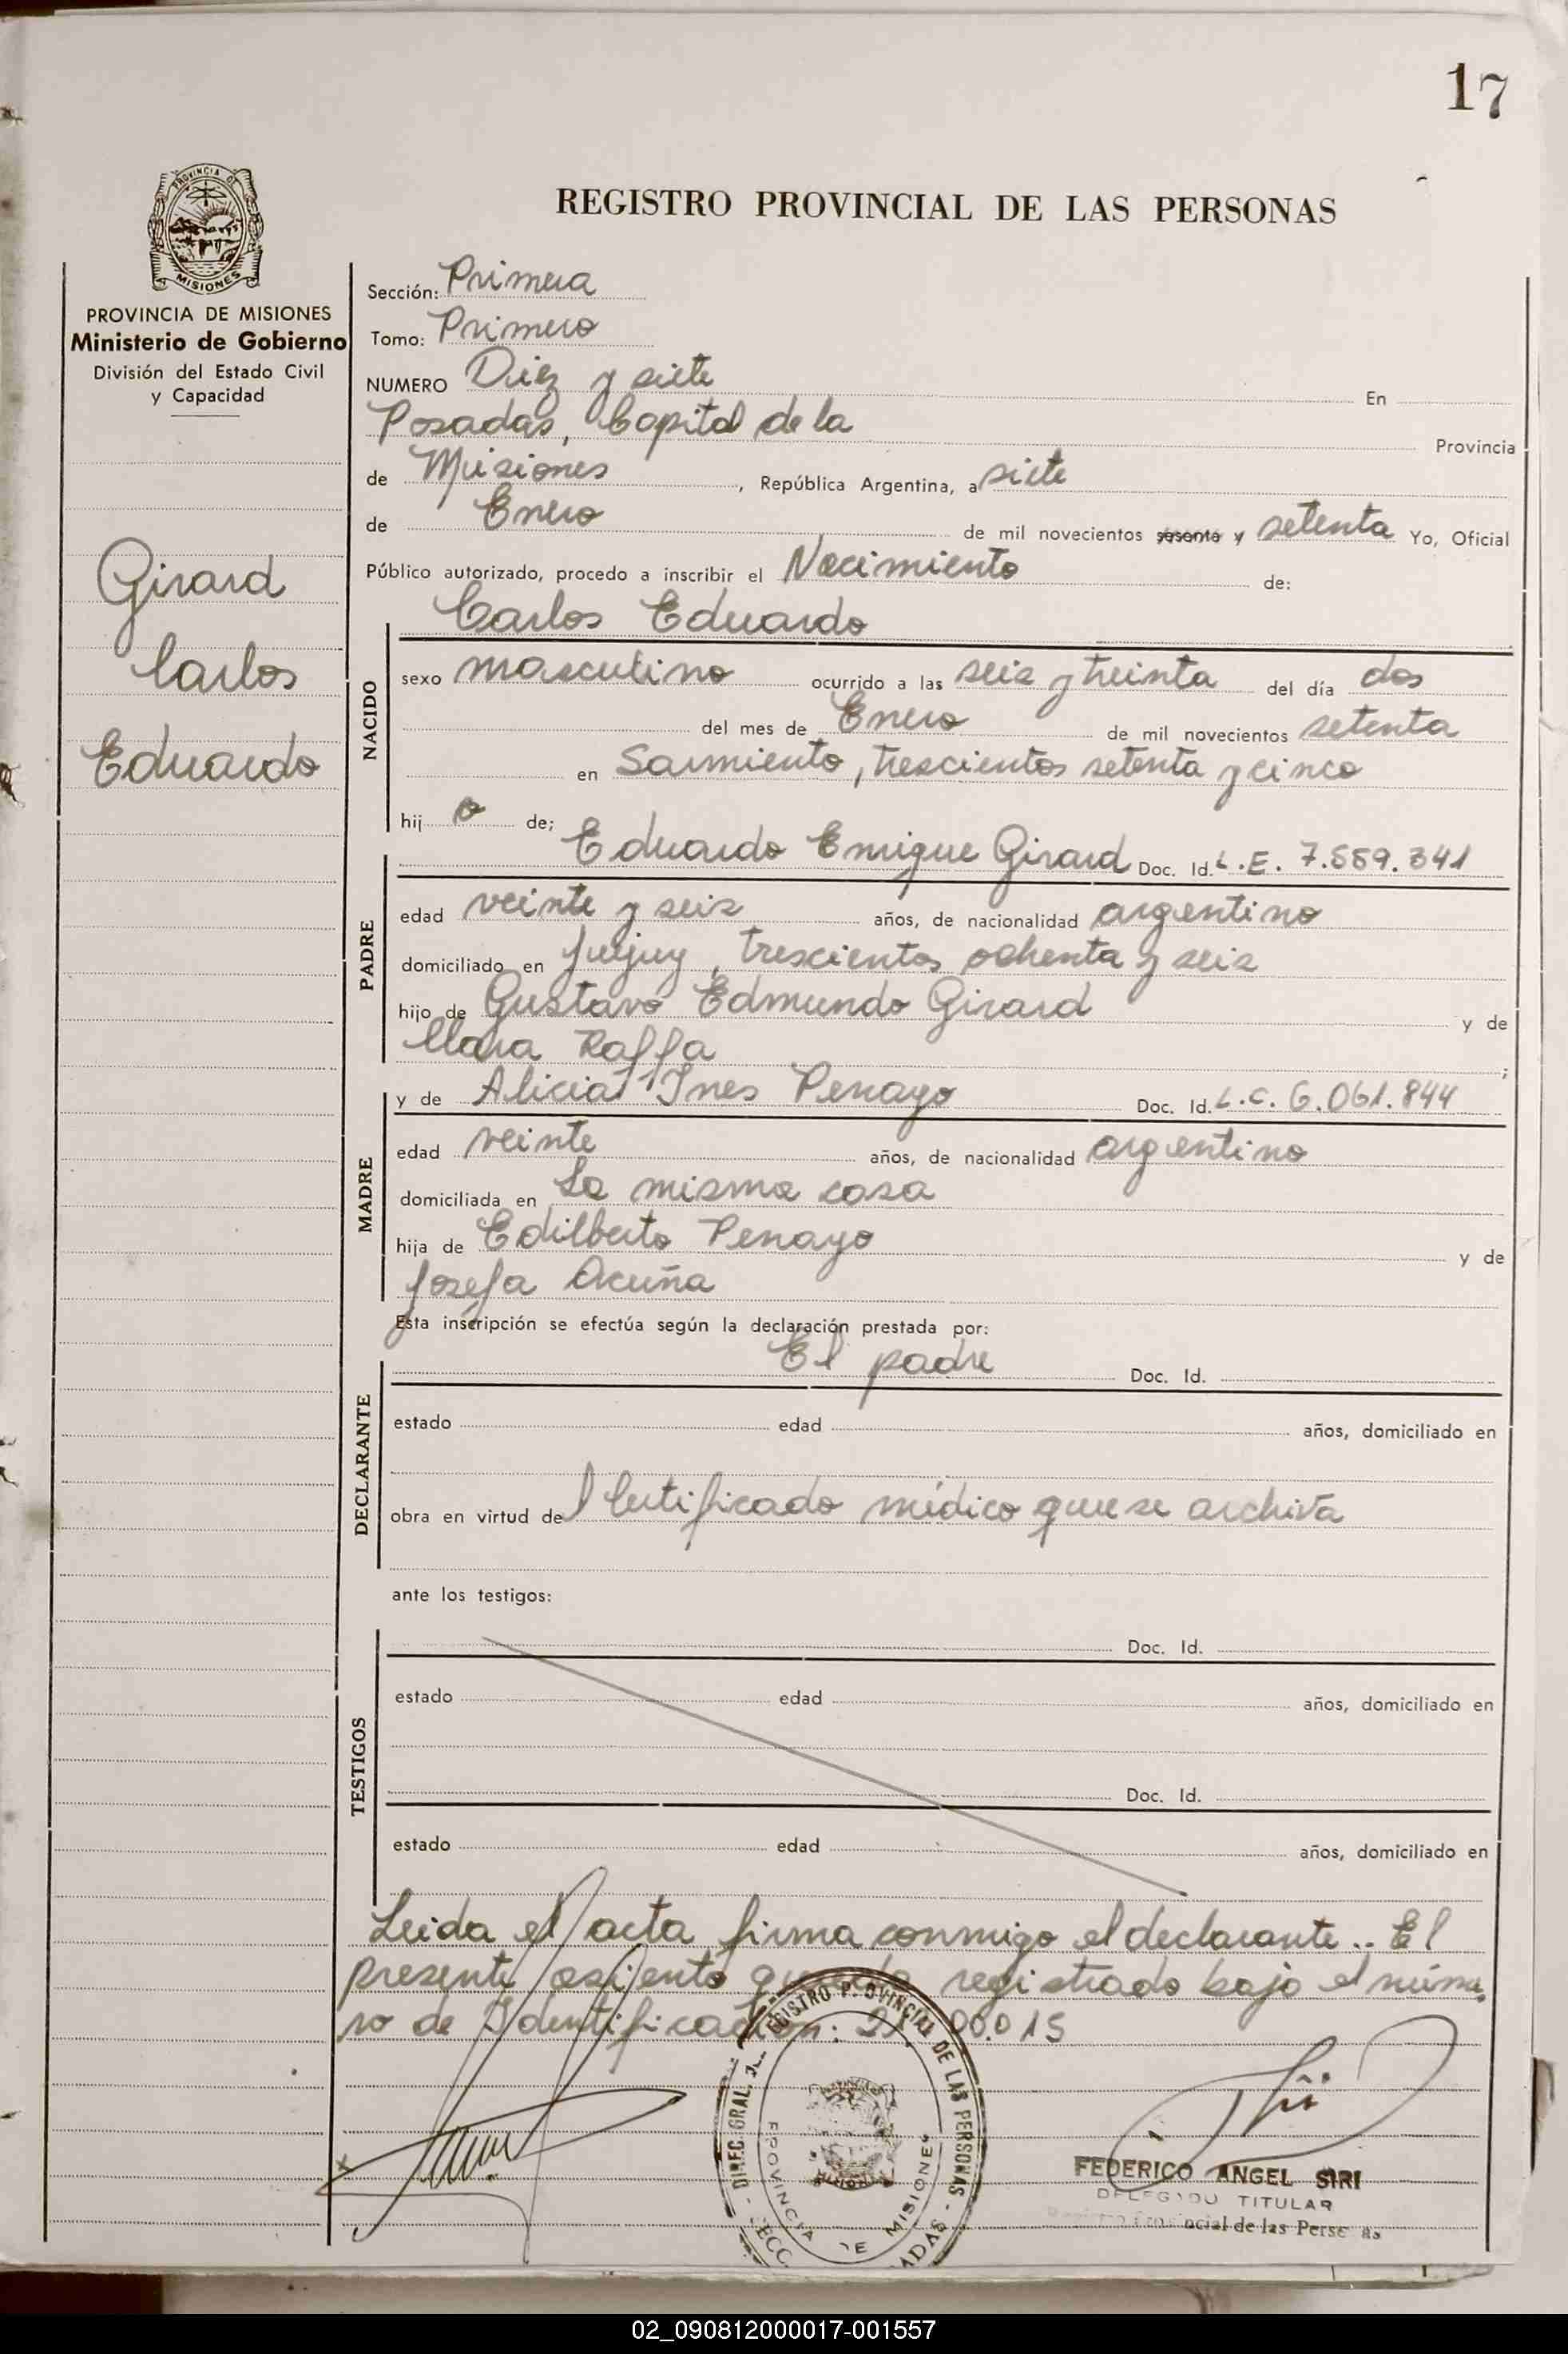 17
REGISTRO PROVINCIAL DE LAS PERSONAS
PROVINCIA DE
MISIONES
PROVINCIA DE MISIONES
Ministerio de Gobierno
División del Estado Civil
y Capacidad
Girard
Carlos
Eduardo
Sección: Primera
Tomo: Primero
NUMERO Diez y siete En
Posadas, Capital de la Provincia
de Misiones, República Argentina, a siete
de Enero de mil novecientos sesenta y setenta Yo, Oficial
Público autorizado, procedo a inscribir el Nacimiento de:
Carlos Eduardo
NACIDO
sexo masculino ocurrido a las seis y treinta del día dos
del mes de Enero de mil novecientos setenta
en Sarmiento, trescientos setenta y cinco
hij o de;
Eduardo Enrique Girard Doc. Id. L.E. 7.559.341
PADRE
edad veinte y seis años, de nacionalidad argentino
domiciliado en Jujuy, trescientos ochenta y seis
hijo de Gustavo Edmundo Girard y de
Clara Raffa;
y de Alicia Ines Penayo Doc. Id. L.C. 6.061.844
MADRE
edad veinte años, de nacionalidad argentino
domiciliada en La misma casa
hija de Edilberto Penayo y de
Josefa Acuña
Esta inscripción se efectúa según la declaración prestada por:
El padre Doc. Id.
DECLARANTE
estado edad años, domiciliado en
obra en virtud del Certificado médico que se archiva
ante los testigos:
TESTIGOS
Doc. Id.
estado edad años, domiciliado en
Doc. Id.
estado edad años, domiciliado en
Leida el acta firma conmigo el declarante.. El
presente asiento queda registrado bajo el núme
ro de Identificación: 00.015
DIREC. GRAL. REGISTRO PROVINCIAL DE LAS PERSONAS
PROVINCIA DE MISIONES
FEDERICO ANGEL SIRI
DELEGADO TITULAR
Registro Provincial de las Personas
02_090812000017-001557